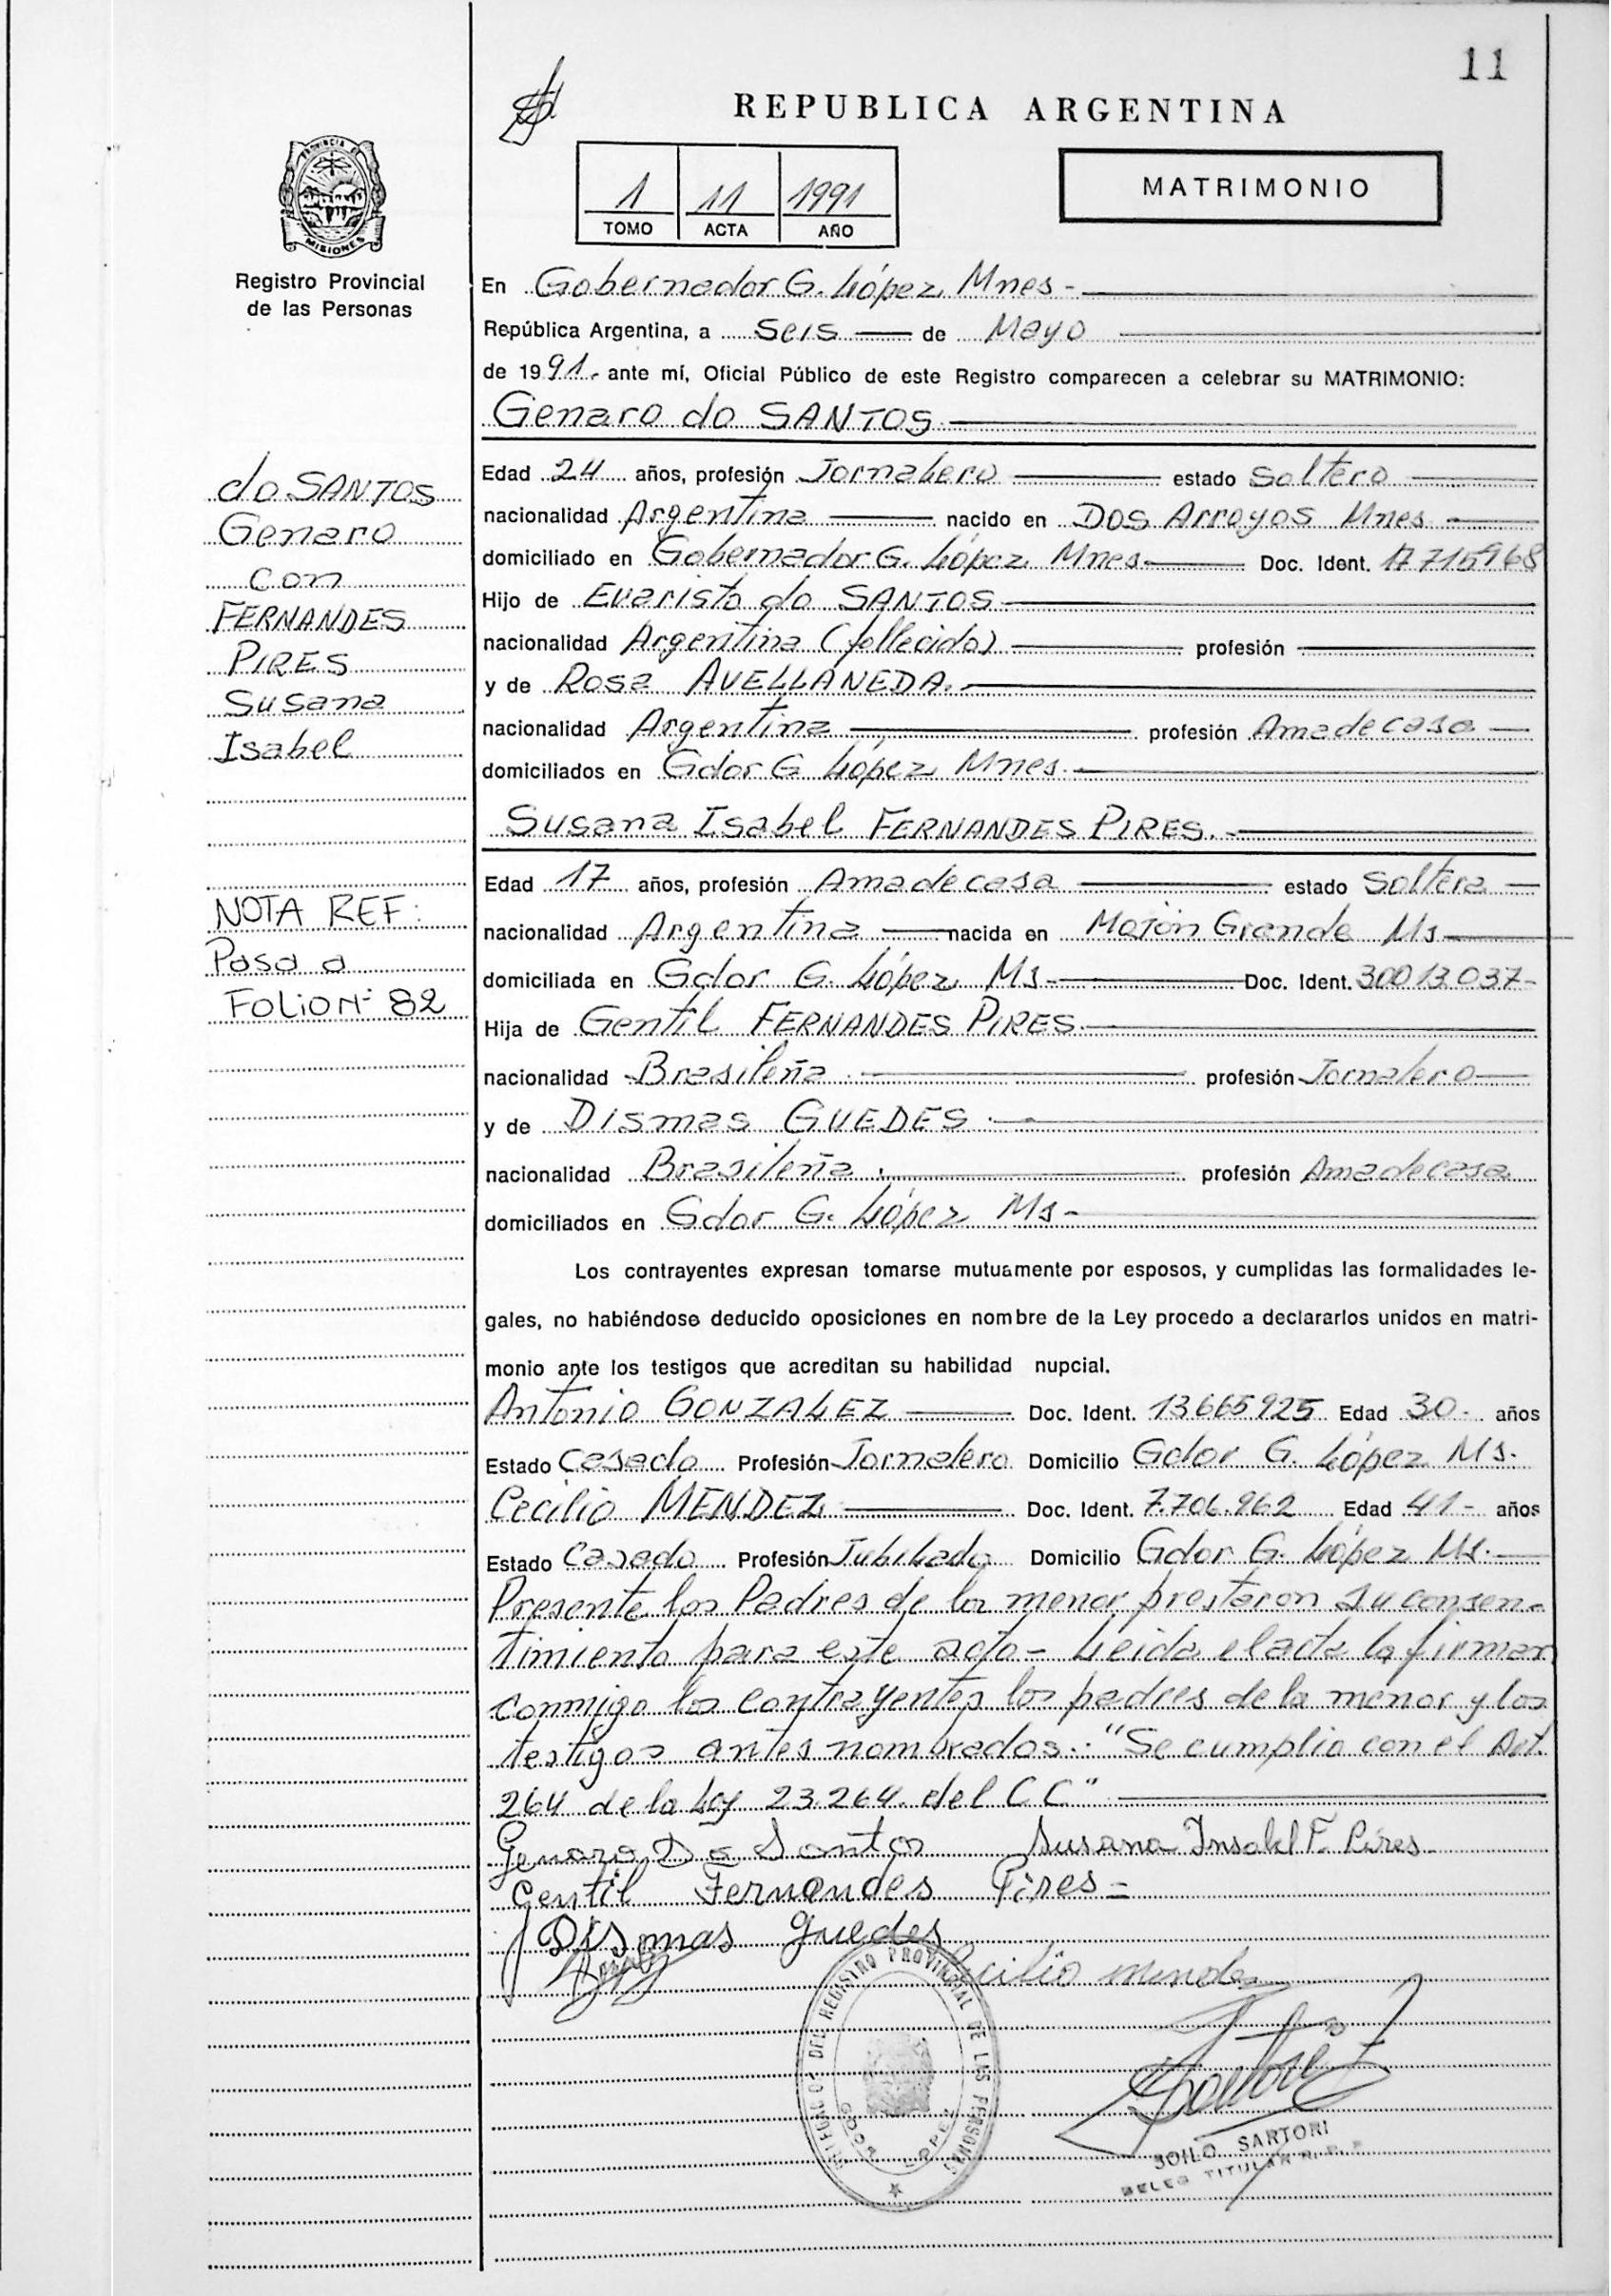 11
REPUBLICA ARGENTINA
PROVINCIA DE
MISIONES
Registro Provincial
de las Personas
1 11 1991
TOMO ACTA AÑO
MATRIMONIO
En Gobernador G. López Mnes -
República Argentina, a Seis de Mayo
de 1991.- ante mí, Oficial Público de este Registro comparecen a celebrar su MATRIMONIO:
Genaro do SANTOS
do SANTOS
Genaro
con
FERNANDES
PIRES
Susana
Isabel
NOTA REF:
Pasa a
Folio N° 82
Edad 24 años, profesión Jornalero estado Soltero
nacionalidad Argentina nacido en Dos Arroyos Mnes
domiciliado en Gobernador G. López Mnes Doc. Ident. 17715968
Hijo de Evaristo do SANTOS
nacionalidad Argentina (fallecido) profesión
y de Rosa AVELLANEDA.
nacionalidad Argentina profesión Ama de casa
domiciliados en Gdor G López Mnes.
Susana Isabel FERNANDES PIRES.
Edad 17 años, profesión Ama de casa estado Soltera
nacionalidad Argentina nacida en Mojón Grande Ms
domiciliada en Gdor G. López Ms Doc. Ident. 30013037-
Hija de Gentil FERNANDES PIRES
nacionalidad Brasileña profesión Jornalero
y de Dismas GUEDES
nacionalidad Brasileña profesión Ama de casa
domiciliados en Gdor G. López Ms -
Los contrayentes expresan tomarse mutuamente por esposos, y cumplidas las formalidades le-
gales, no habiéndose deducido oposiciones en nombre de la Ley procedo a declararlos unidos en matri-
monio ante los testigos que acreditan su habilidad nupcial.
Antonio GONZALEZ Doc. Ident. 13665925 Edad 30- años
Estado Casado Profesión Jornalero Domicilio Gdor G. López Ms.
Cecilio MENDEZ Doc. Ident. 7.706.962 Edad 41- años
Estado Casado Profesión Jubilado Domicilio Gdor G. López Ms.
Presente los Padres de la menor prestaron su consen-
timiento para este acto- Leida el acta la firman
conmigo los contrayentes los padres de la menor y los
testigos antes nombrados.- "Se cumplio con el Art.
264 de la Ley 23.264 del C C"
Genaro Do Santos Susana Insabel F. Pires
Gentil Fernandes Pires =
Dismas guedes
Cecilio mendez
DEL REGISTRO PROVINCIAL DE LAS PERSONAS
GDOR LOPEZ
SOILO SARTORI
DELEG TITULAR R. P. P.